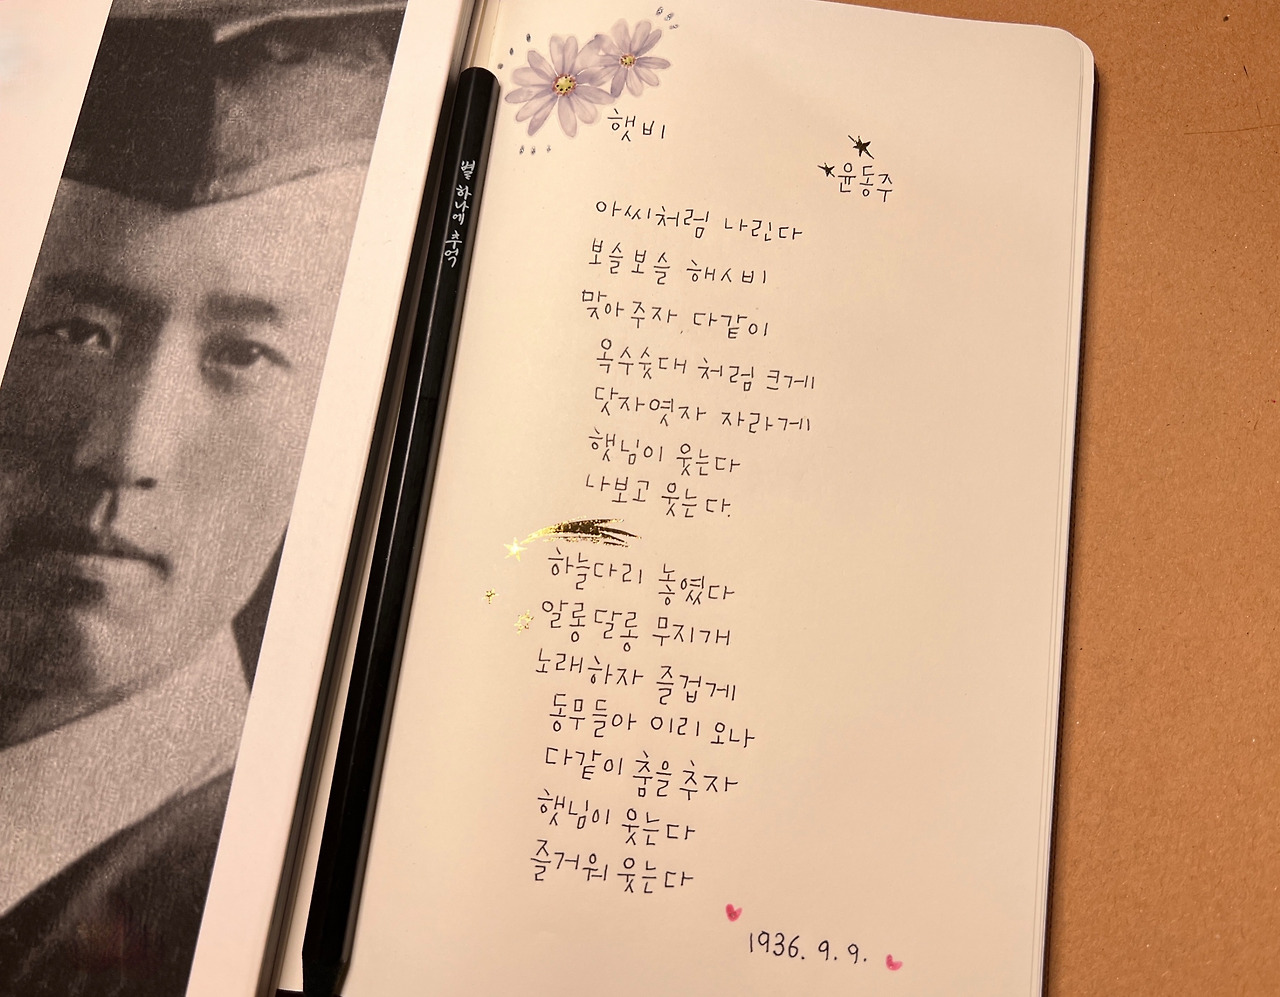 별 하나에 추억
햇비
윤동주
아씨처럼 나린다
보슬보슬 해ㅅ비
맞아 주자, 다같이
옥수숫대 처럼 크게
닷자엿자 자라게
햇님이 웃는다
나보고 웃는다.
하늘다리 놓였다
알롱달롱 무지개
노래하자 즐겁게
동무들아 이리 오나
다같이 춤을 추자
햇님이 웃는다
즐거워 웃는다
1936. 9. 9.